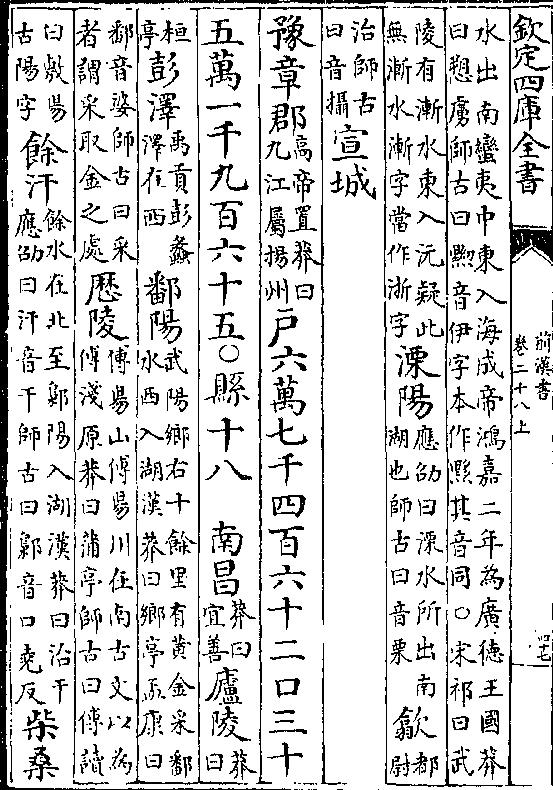 欽定四庫全書
前漢書
卷二十八上
四七
水出南蠻夷中東入海成帝鴻嘉二年為廣德王國莽
曰愬虜師古曰黟音伊字本作黝其音同○宋祁曰武
陵有漸水東入沅疑此無漸水漸字當作浙字溧陽應劭曰溧水所出南湖也師古曰音栗歙都尉
治師古曰音攝宣城
豫章郡高帝置莽曰九江屬揚州戶六萬七千四百六十二口三十
五萬一千九百六十五○縣十八　南昌莽曰宜善廬陵莽曰
桓亭彭澤禹貢彭蠡澤在西鄱陽武陽鄉右十餘里有黃金采鄱水西入湖漢莽曰鄉亭孟康曰
鄱音婆師古曰采者謂采取金之處厯陵傅昜山傅昜川在南古文以為傅淺原莽曰蒲亭師古曰傅讀
曰敷昜古陽字餘汗餘水在北至鄡陽入湖漢莽曰治干應劭曰汗音干師古曰鄡音口堯反柴桑